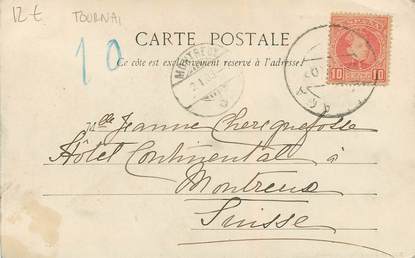 12€ TOURNAI
10
CARTE POSTALE
Ce côté est exclusivement réservé à l'adresse.
MONTREUX
10 10
Mlle Jeanne Cherequefosse
Hôtel Continental à
Montreux
Suisse